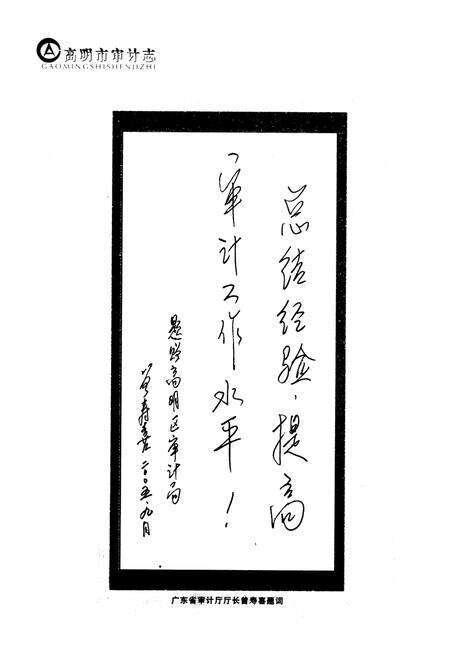 高明市审计志
GAOMINGSHISHENJIZHI
总结经验,提高
审计工作水平!
题赠高明区审计局
曾寿喜二〇〇五.九月
广东省审计厅厅长曾寿喜题词